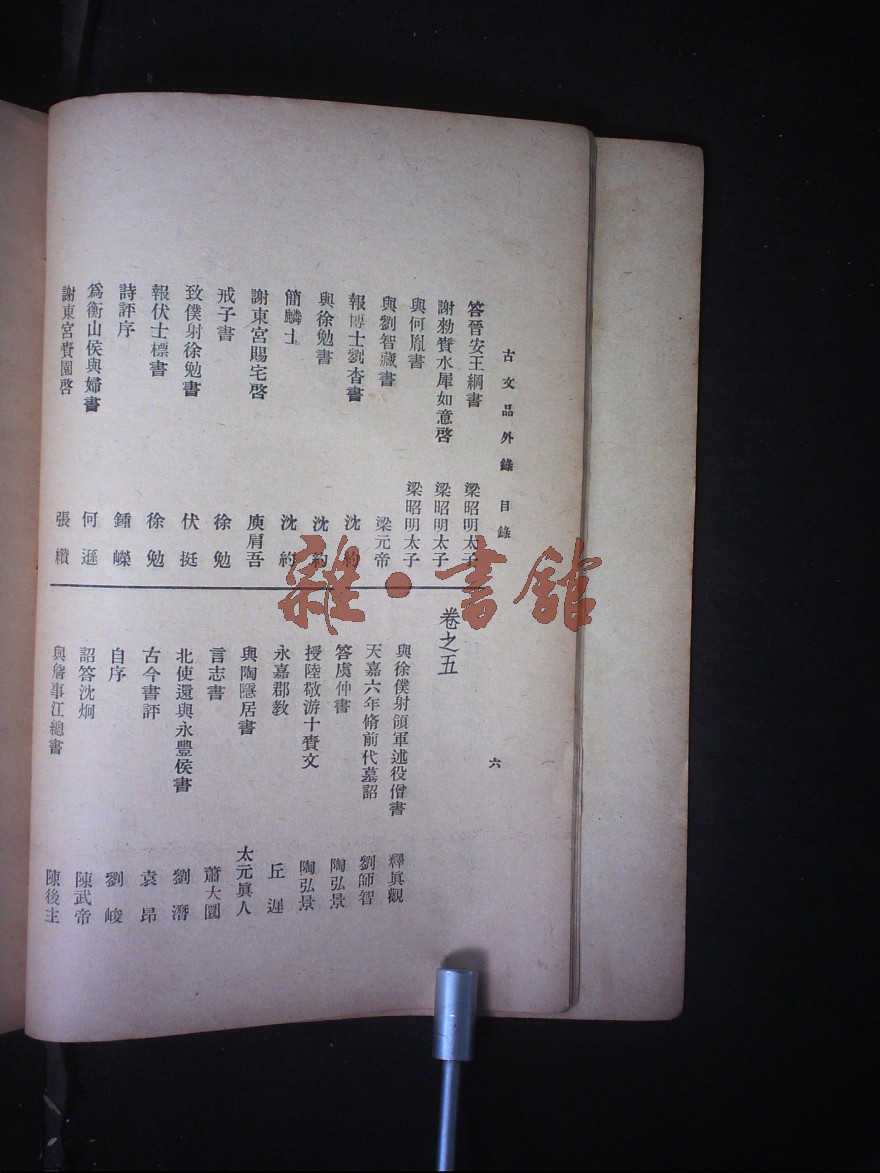 古文品外錄 目錄
六
答晉安王綱書 梁昭明太子
謝勑賚水犀如意啓 梁昭明太子
與何胤書 梁昭明太子
與劉智藏書 梁元帝
報博士劉杳書 沈約
與徐勉書 沈約
簡麟士 沈約
謝東宮賜宅啓 庾肩吾
戒子書 徐勉
致僕射徐勉書 伏挺
報伏士標書 徐勉
詩評序 鍾嶸
爲衡山侯與婦書 何遜
謝東宮賚園啓 張纘
卷之五
與徐僕射領軍述役僧書 釋眞觀
天嘉六年脩前代墓詔 劉師智
答虞仲書 陶弘景
授陸敬游十賚文 陶弘景
永嘉郡敎 丘遲
與陶隱居書 太元眞人
言志書 蕭大圜
北使還與永豐侯書 劉潛
古今書評 袁昂
自序 劉峻
詔答沈炯 陳武帝
與詹事江總書 陳後主
雜·書館